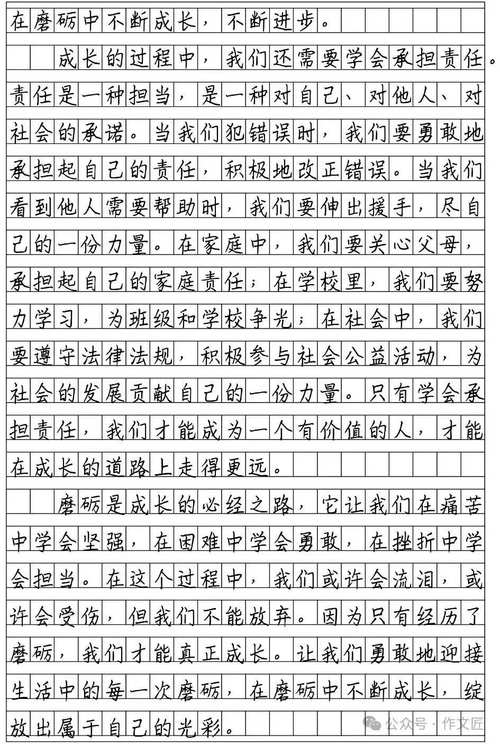 在磨砺中不断成长，不断进步。
成长的过程中，我们还需要学会承担责任。
责任是一种担当，是一种对自己、对他人、对
社会的承诺。当我们犯错误时，我们要勇敢地
承担起自己的责任，积极地改正错误。当我们
看到他人需要帮助时，我们要伸出援手，尽自
己的一份力量。在家庭中，我们要关心父母，
承担起自己的家庭责任；在学校里，我们要努
力学习，为班级和学校争光；在社会中，我们
要遵守法律法规，积极参与社会公益活动，为
社会的发展贡献自己的一份力量。只有学会承
担责任，我们才能成为一个有价值的人，才能
在成长的道路上走得更远。
磨砺是成长的必经之路，它让我们在痛苦
中学会坚强，在困难中学会勇敢，在挫折中学
会担当。在这个过程中，我们或许会流泪，或
许会受伤，但我们不能放弃。因为只有经历了
磨砺，我们才能真正成长。让我们勇敢地迎接
生活中的每一次磨砺，在磨砺中不断成长，绽
放出属于自己的光彩。
公众号·作文匠